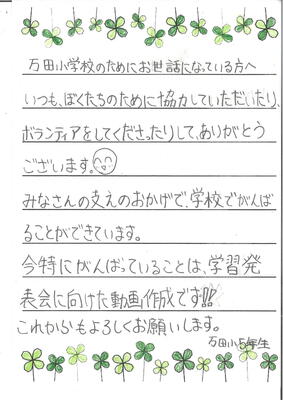 万田小学校のためにお世話になっている方へ
いつも、ぼくたちのために協力していただいたり、
ボランティアをしてくださったりして、ありがとう
ございます。
みなさんの支えのおかげで、学校でがんば
ることができています。
今特にがんばっていることは、学習発
表会に向けた動画作成です!!
これからもよろしくお願いします。
万田小5年生